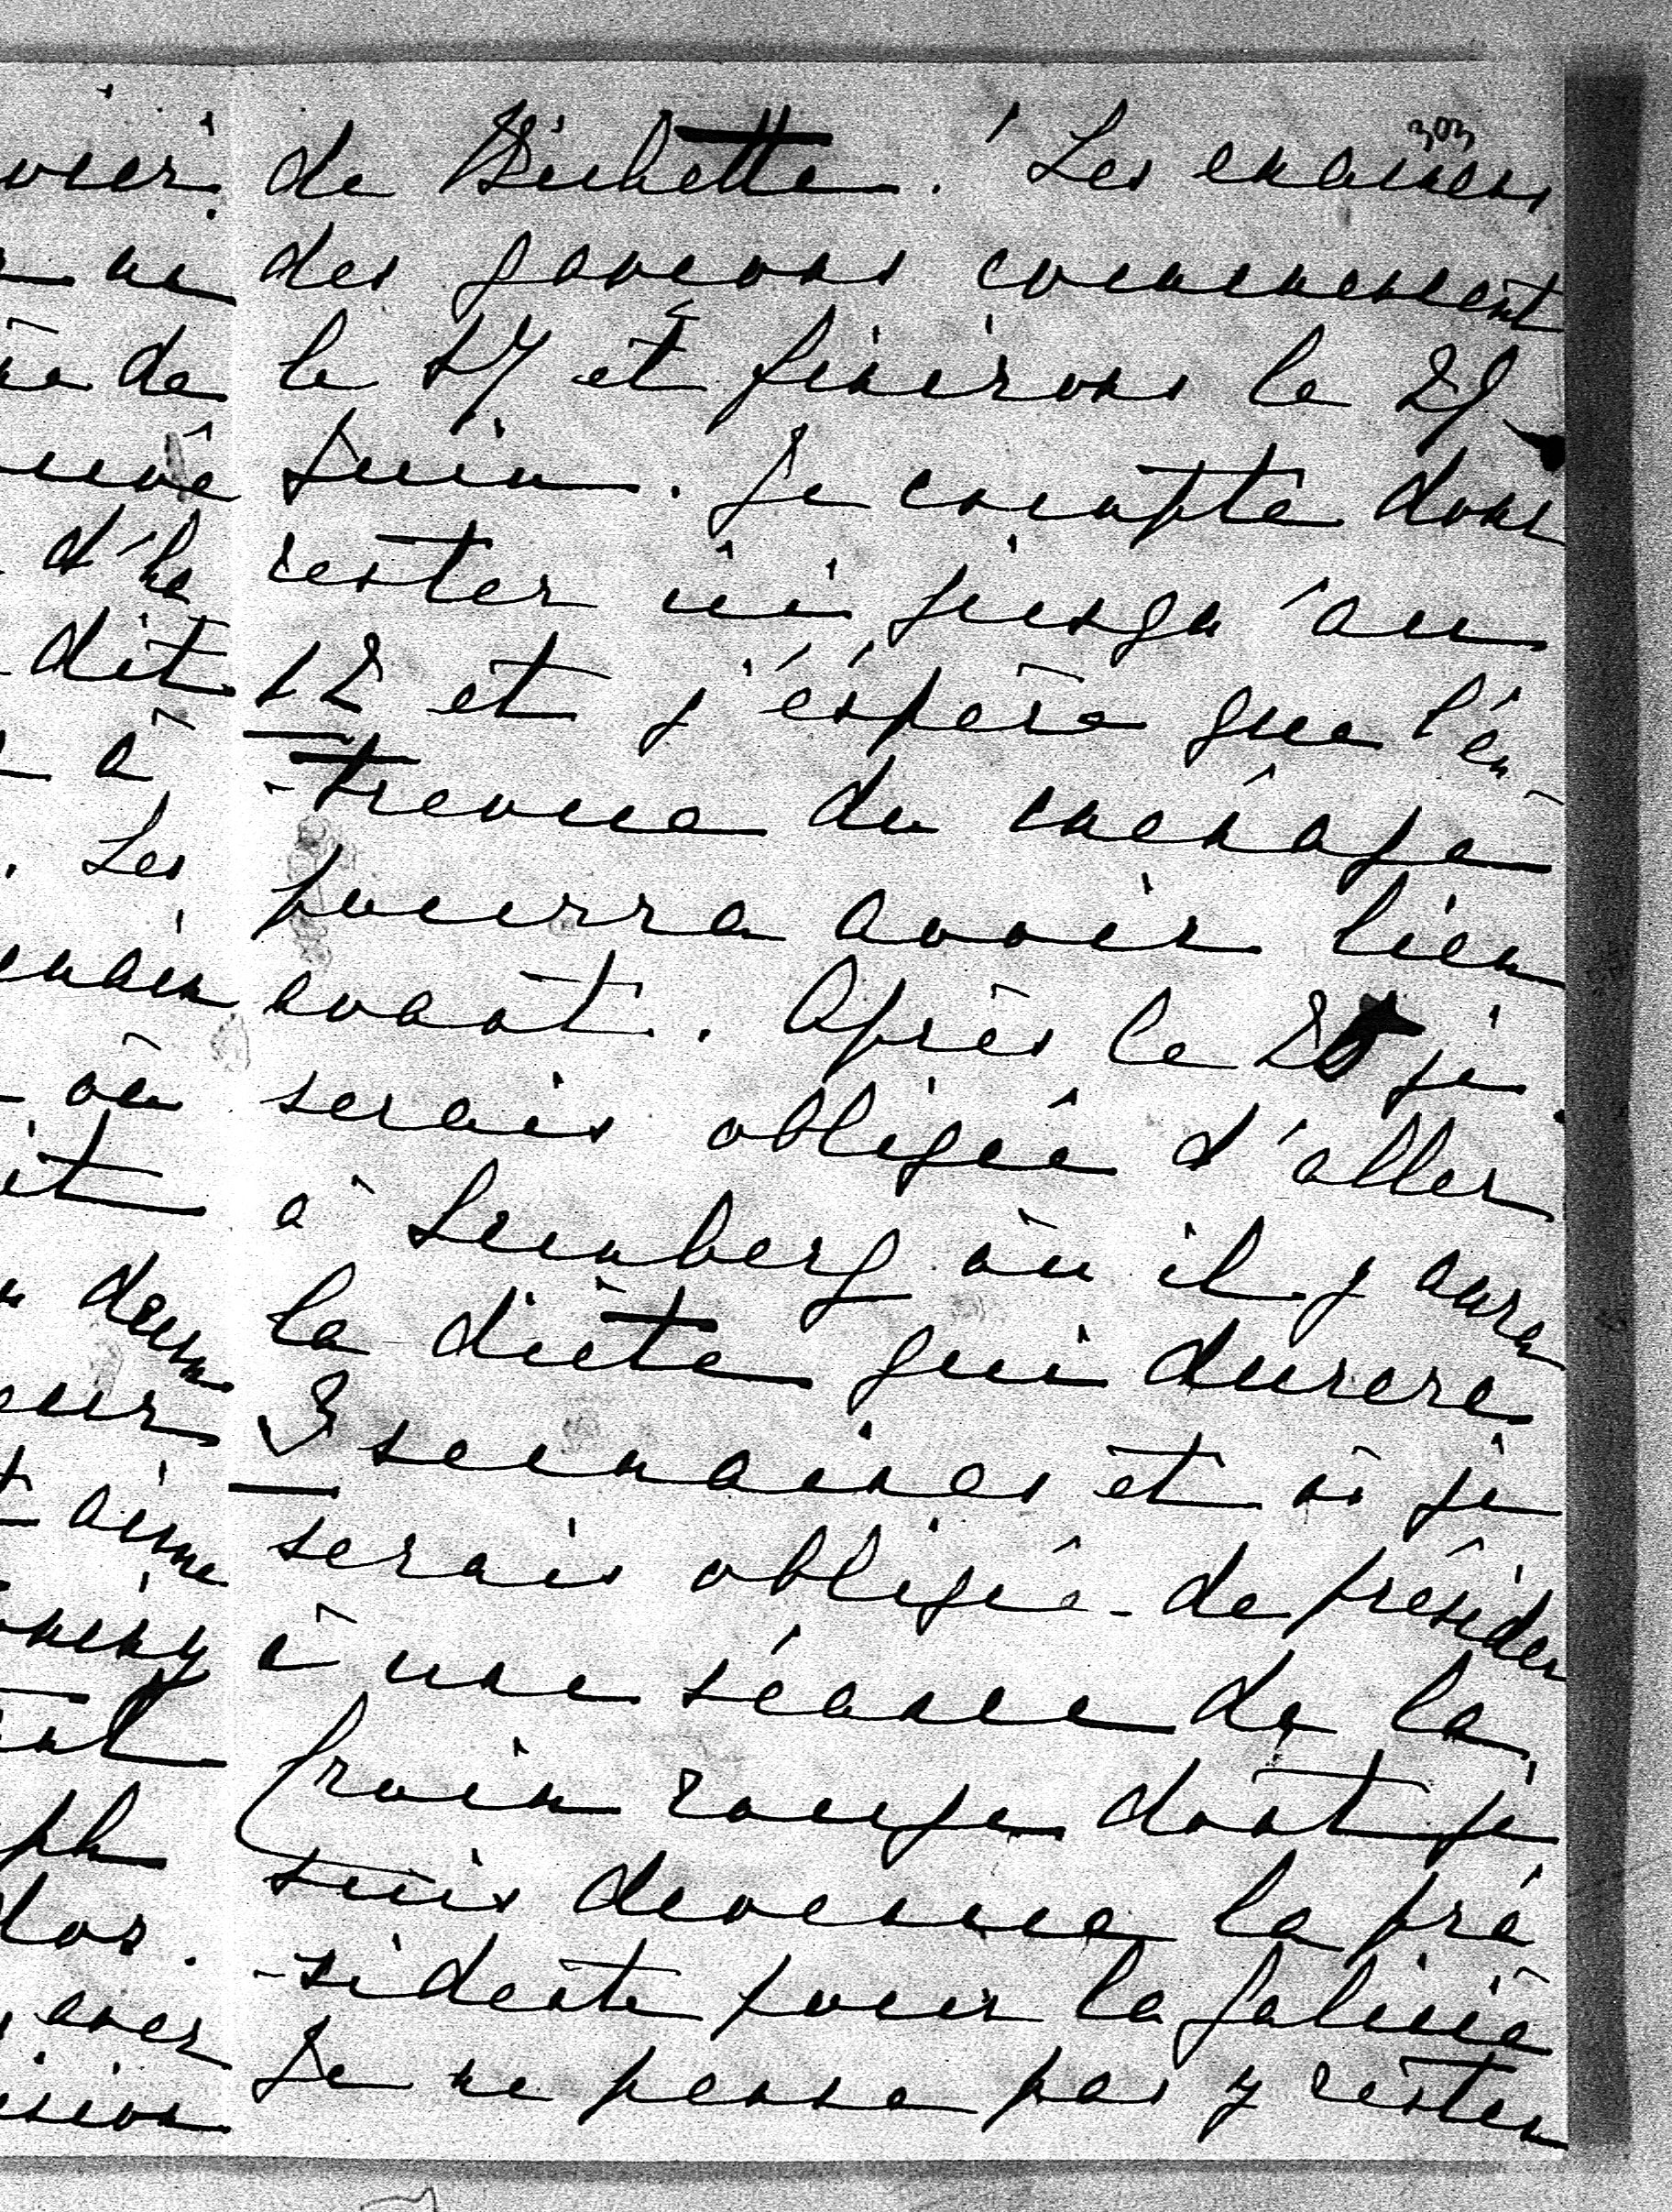 303
de Bichette. Les examens
des garçons commencent
le 17 et finirons le 25
Juin. Je compte donc
rester ici jusqu'au
12 et j'éspère que l'en
-trevue du ménage
pourra avoir lieu
avant. Après le 20 je
serais obligée d'aller
à Lemberg où il y aura
la diète qui durera
3 semaines et où je
serais obligée de présider
à une séance de la
croix rouge dont je
suis devenue la pré
-sidente pour la Galicie
Je ne pense pas y rester
ne
de
d'ha
dit
à
Les
où
deux
aime
avec